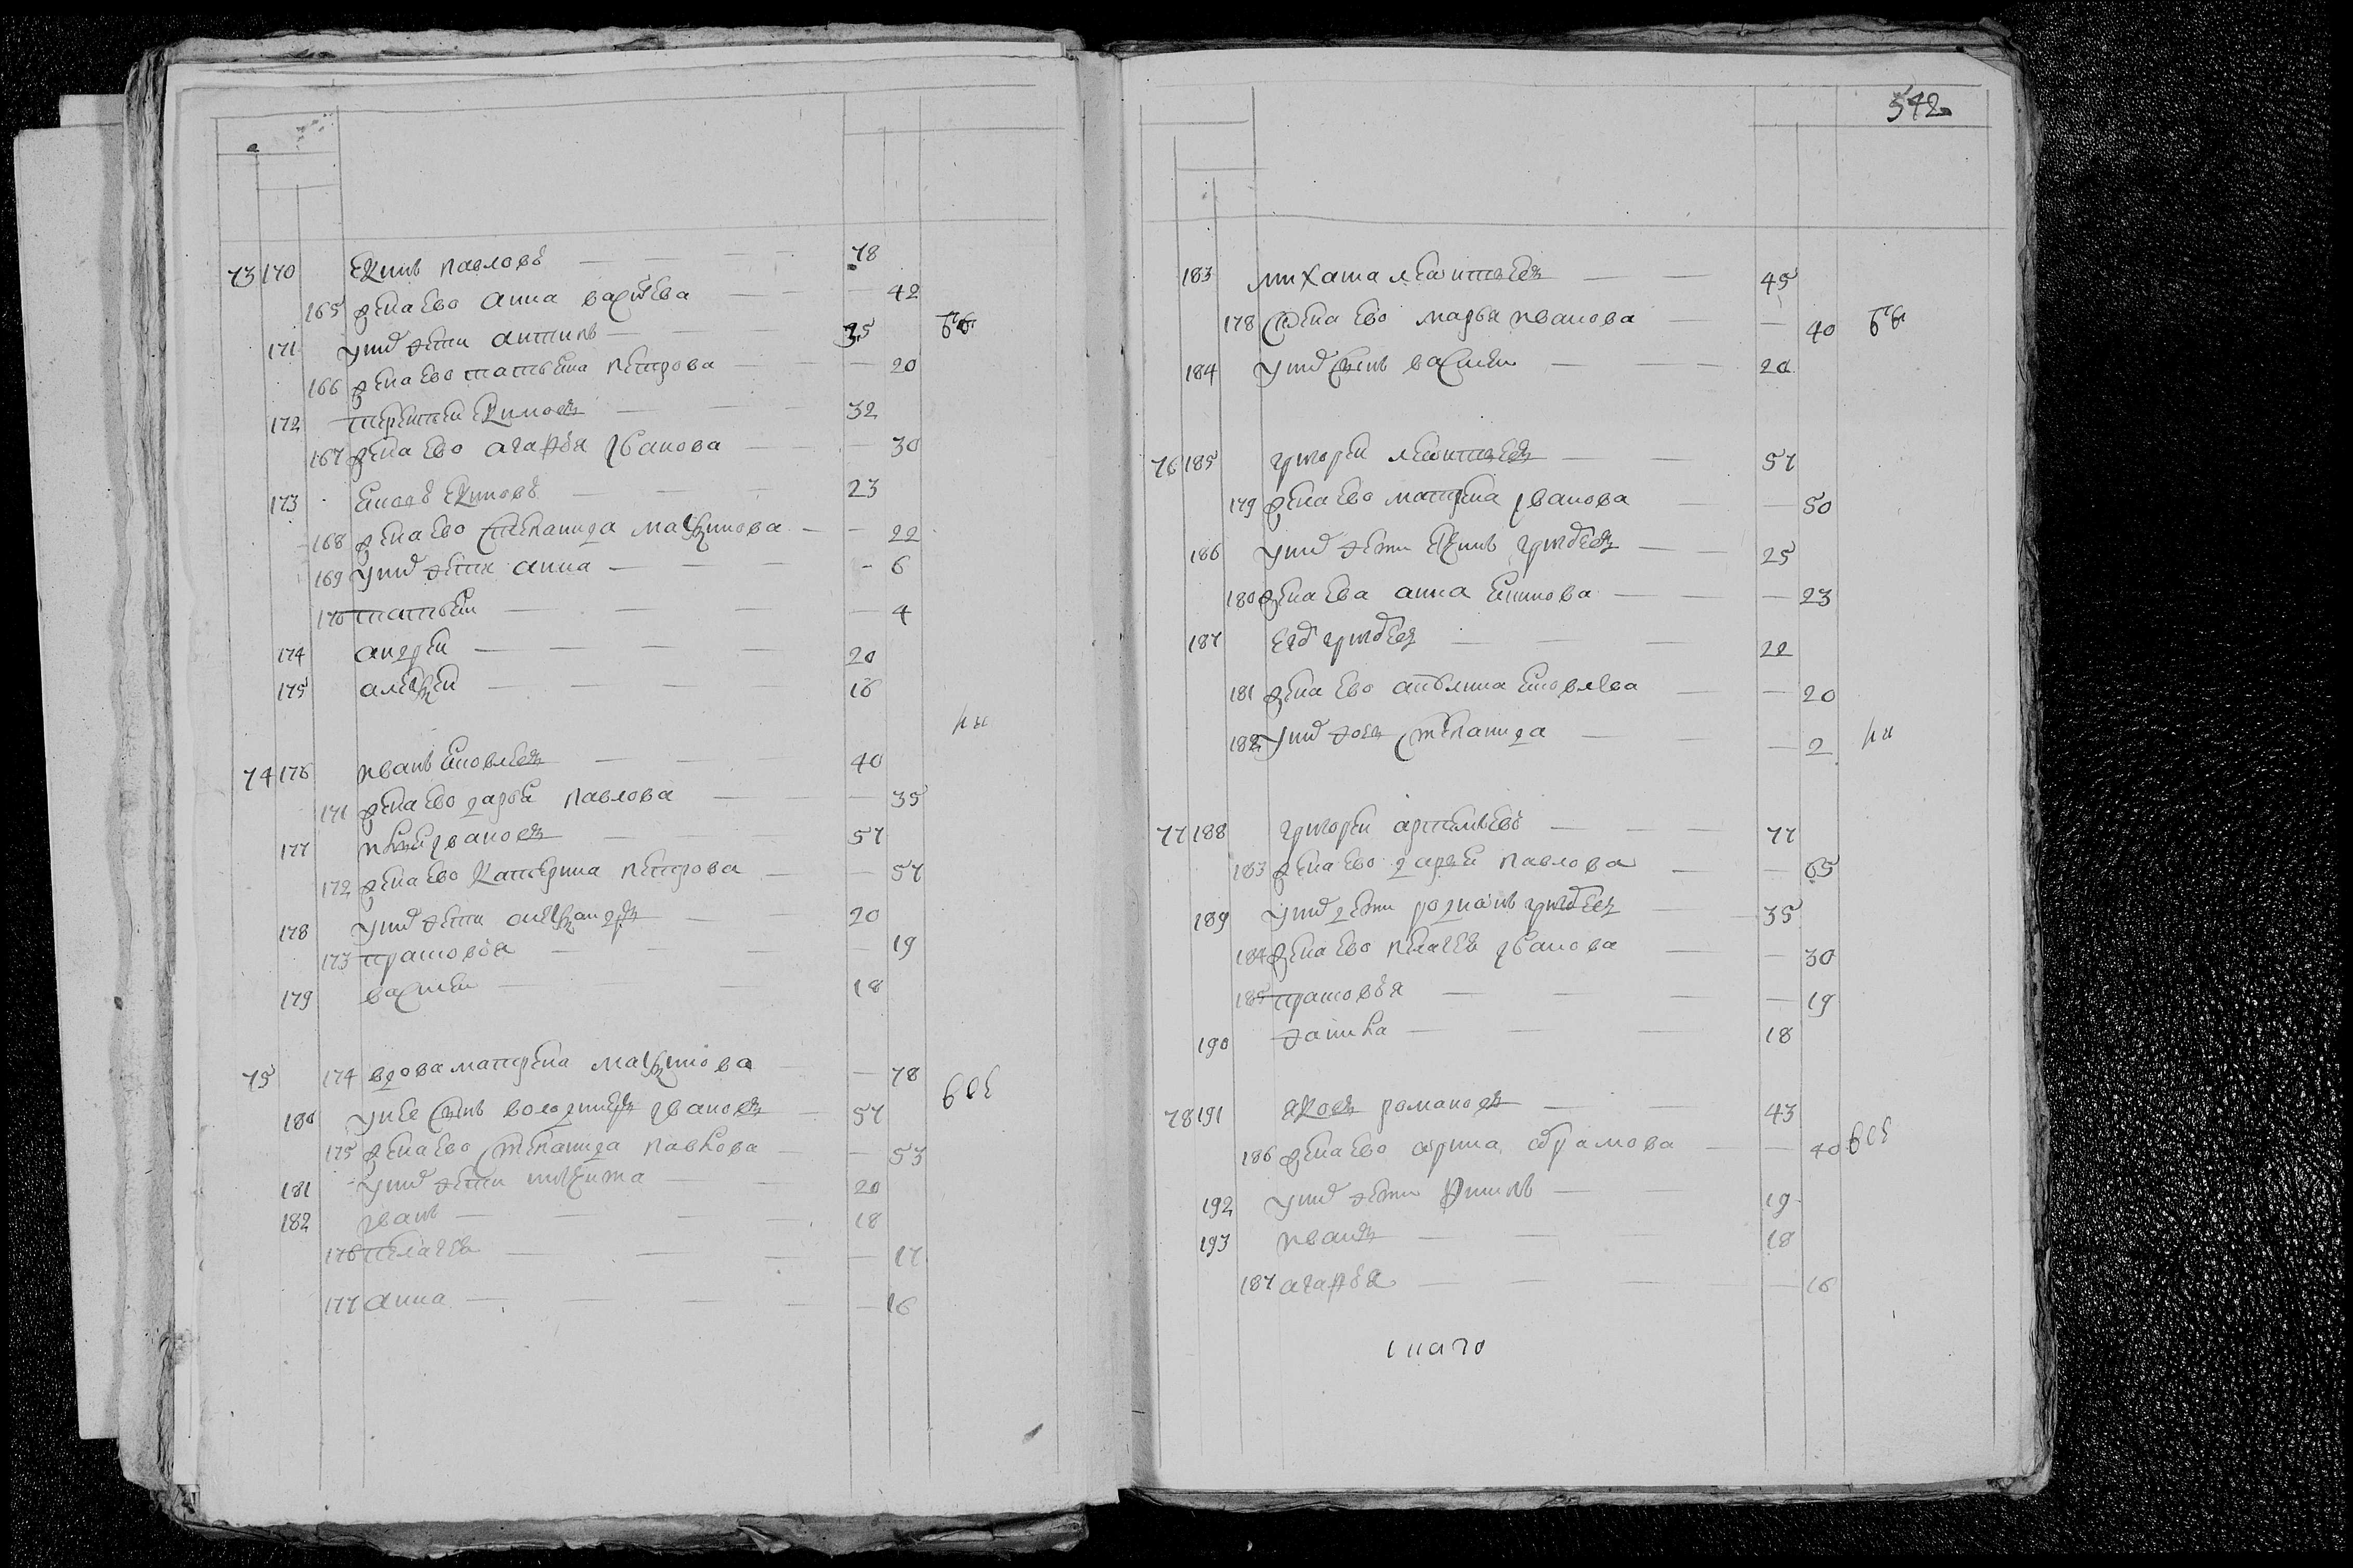 73 170 Екимъ павловъ 78
165 жена ево анна васильева 42
171 у них дети антипъ 35 быи
166 жена ево татьяна петрова 20
172 терентеи екимовъ 32
167 жена ево агафья иванова 30
173 екимовъ 23
168 жена ево степанида максимова 22
169 у них дети анна 6
170 татьяна 4
174 андреи 20
175 алексеи 16
ли
74 176 иванъ яковлевъ 40
171 жена ево дарья павлова 35
177 ивановъ 57
172 жена ево катерина петрова 57
178 у них дети александръ 20
173 прасковья 19
179 василеи 18
75 174 вдова матрена максимова 78
180 у нее сынъ володимеръ ивановъ 57 все
175 жена ево степанида павлова 53
181 у них дети никита 20
182 иванъ 18
176 пелагея 17
177 анна 16
542
183 михаила леонтьевъ 45
178 жена ево марья иванова 40 быи
184 у них сынъ василеи 20
76 185 григореи леонтьевъ 57
179 жена ево матрена иванова 50
186 у них дети екимъ григорьевъ 25
180 жена ева анна 23
187 григорьевъ 22
181 жена ево яковлева 20
182 у них дочь степанида 2 ли
77 188 григореи артемьевъ 77
183 жена ево дарья павлова 65
189 у них дети родионъ григорьевъ 35
184 жена ево пелагея иванова 30
185 прасковья 19
190 данила 18
78 191 яковъ романовъ 43
186 жена ево арина абрамова 40 все
192 у них дети филипъ 19
193 иванъ 18
187 агафья 16